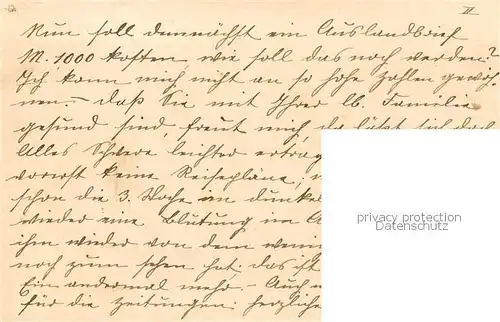 II
Nun soll demnächst ein Auslandsbrief
M. 1000 kosten, wie soll das noch werden?
Ich kann mich nicht an so hohe Zahlen gewöh-
nen. – Daß Sie mit Ihrer lb. Familie
gesund sind, freut mich, da läßt sich doch
Alles Schwere leichter ertrag
vorerst keine Reisepläne,
schon die 3. Woche im dunkel
wieder eine Blutung im A
ihm wieder von dem weni
noch zum sehen hat; das ist
Ein andermal mehr. – Auch
für die Zeitungen; herzliche
privacy protection
Datenschutz